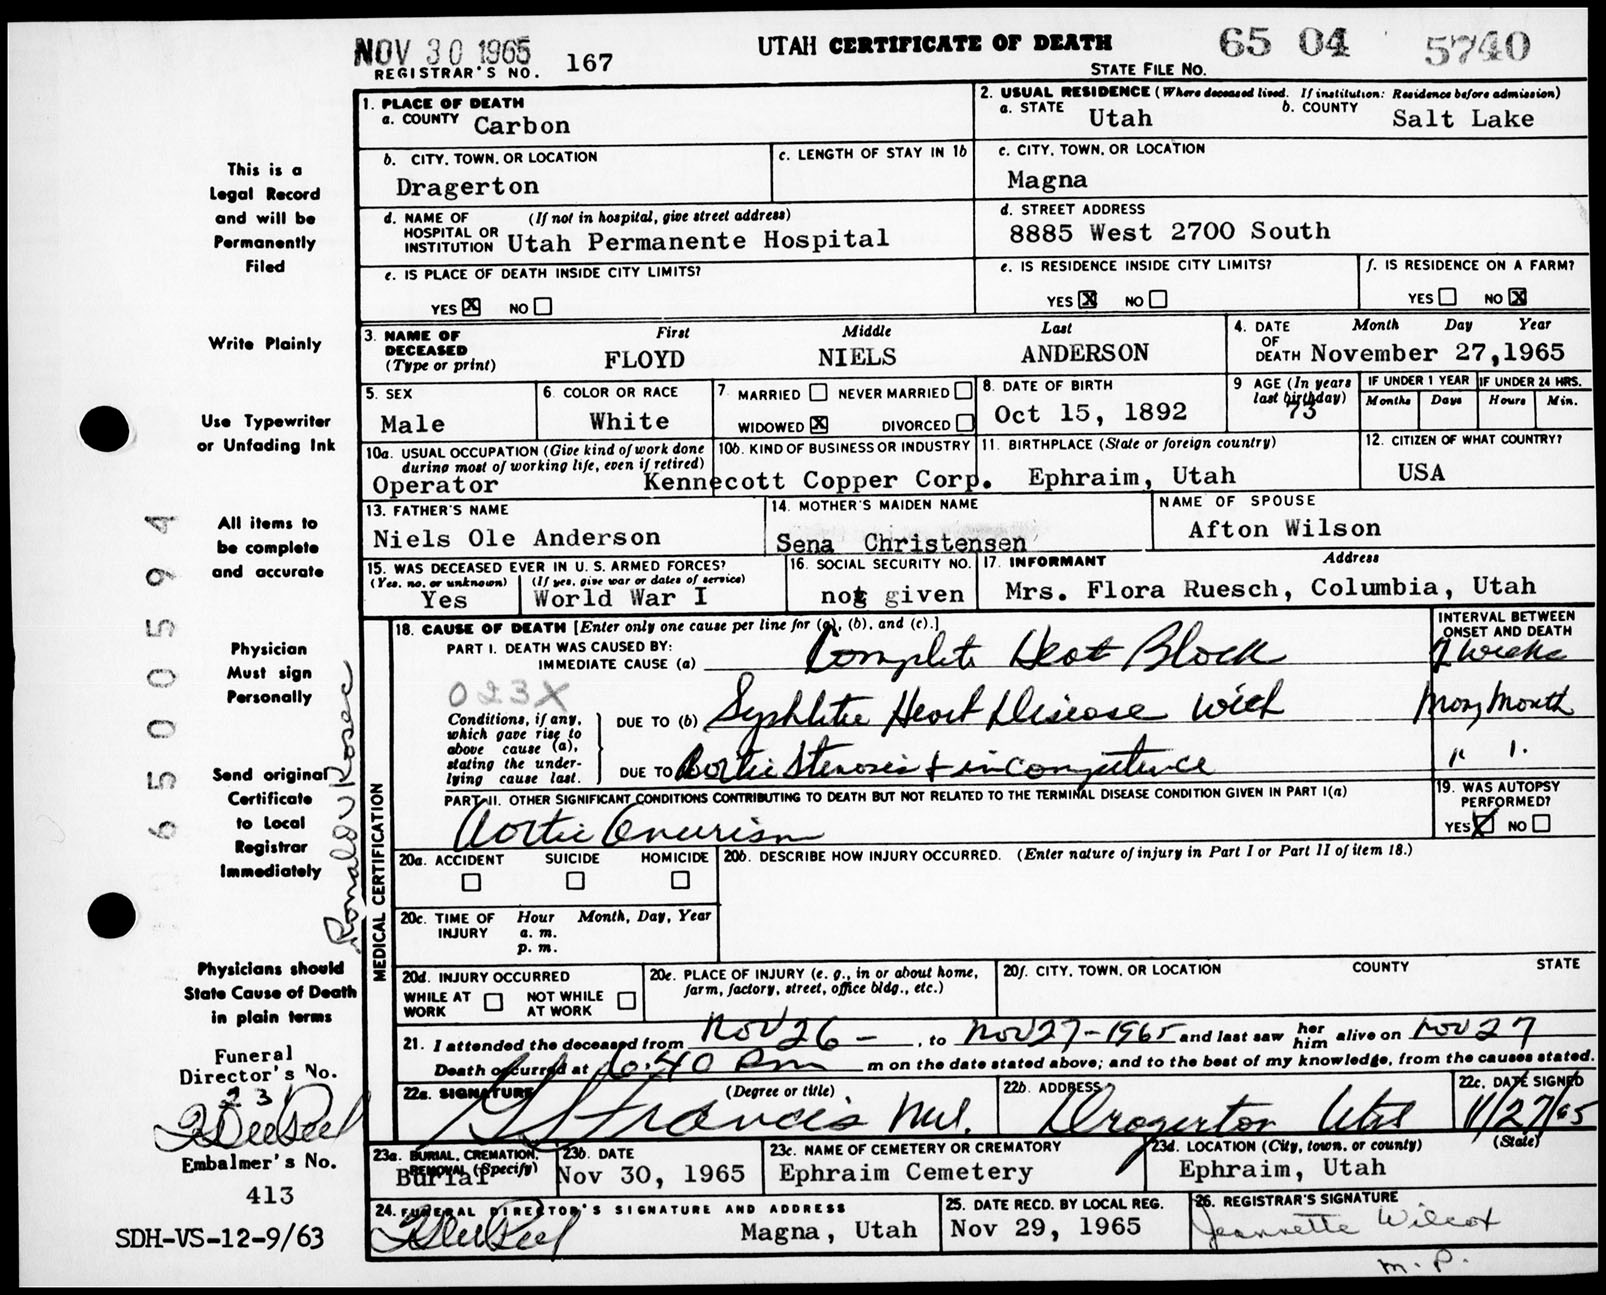 NOV 30 1965
REGISTRAR'S NO. 167
UTAH CERTIFICATE OF DEATH
65 04 5740
STATE FILE NO.
1. PLACE OF DEATH
a. COUNTY Carbon
2. USUAL RESIDENCE (Where deceased lived. If institution: Residence before admission)
a. STATE Utah b. COUNTY Salt Lake
b. CITY, TOWN, OR LOCATION
Dragerton
c. LENGTH OF STAY IN 1b
c. CITY, TOWN, OR LOCATION
Magna
d. NAME OF HOSPITAL OR INSTITUTION (If not in hospital, give street address)
Utah Permanente Hospital
d. STREET ADDRESS
8885 West 2700 South
e. IS PLACE OF DEATH INSIDE CITY LIMITS?
YES X NO
e. IS RESIDENCE INSIDE CITY LIMITS?
YES X NO
f. IS RESIDENCE ON A FARM?
YES NO X
3. NAME OF DECEASED (Type or print)
First Middle Last
FLOYD NIELS ANDERSON
4. DATE OF DEATH Month Day Year
November 27,1965
5. SEX
Male
6. COLOR OR RACE
White
7. MARRIED NEVER MARRIED
WIDOWED X DIVORCED
8. DATE OF BIRTH
Oct 15, 1892
9 AGE (In years last birthday)
73
IF UNDER 1 YEAR IF UNDER 24 HRS.
Months Days Hours Min.
10a. USUAL OCCUPATION (Give kind of work done during most of working life, even if retired)
Operator
10b. KIND OF BUSINESS OR INDUSTRY
Kennecott Copper Corp.
11. BIRTHPLACE (State or foreign country)
Ephraim, Utah
12. CITIZEN OF WHAT COUNTRY?
USA
13. FATHER'S NAME
Niels Ole Anderson
14. MOTHER'S MAIDEN NAME
Sena Christensen
NAME OF SPOUSE
Afton Wilson
15. WAS DECEASED EVER IN U. S. ARMED FORCES?
(Yes, no, or unknown) (If yes, give war or dates of service)
Yes World War I
16. SOCIAL SECURITY NO.
not given
17. INFORMANT Address
Mrs. Flora Ruesch, Columbia, Utah
MEDICAL CERTIFICATION
18. CAUSE OF DEATH [Enter only one cause per line for (a), (b), and (c).]
INTERVAL BETWEEN ONSET AND DEATH
PART I. DEATH WAS CAUSED BY:
IMMEDIATE CAUSE (a) Complete Heat Block weeks
023X
Conditions, if any, which gave rise to above cause (a), stating the underlying cause last.
DUE TO (b) Syphlitic Heart Disease with Many Month
DUE TO Aortic Stenosis & incompetence " "
PART II. OTHER SIGNIFICANT CONDITIONS CONTRIBUTING TO DEATH BUT NOT RELATED TO THE TERMINAL DISEASE CONDITION GIVEN IN PART I(a)
Aortic Aneurism
19. WAS AUTOPSY PERFORMED?
YES X NO
20a. ACCIDENT SUICIDE HOMICIDE
20b. DESCRIBE HOW INJURY OCCURRED. (Enter nature of injury in Part I or Part II of item 18.)
20c. TIME OF INJURY Hour Month, Day, Year
a. m.
p. m.
20d. INJURY OCCURRED
WHILE AT WORK NOT WHILE AT WORK
20e. PLACE OF INJURY (e. g., in or about home, farm, factory, street, office bldg., etc.)
20f. CITY, TOWN, OR LOCATION COUNTY STATE
21. I attended the deceased from Nov 26 - , to Nov 27-1965 and last saw her him alive on Nov 27
Death occurred at 6:40 Pm m on the date stated above; and to the best of my knowledge, from the causes stated.
22a. SIGNATURE (Degree or title)
Francis M.D.
22b. ADDRESS
Dragerton Utah
22c. DATE SIGNED
11/27/65
23a. BURIAL, CREMATION, REMOVAL (Specify)
Burial
23b. DATE
Nov 30, 1965
23c. NAME OF CEMETERY OR CREMATORY
Ephraim Cemetery
23d. LOCATION (City, town, or county) (State)
Ephraim, Utah
24. FUNERAL DIRECTOR'S SIGNATURE AND ADDRESS
Magna, Utah
25. DATE RECD. BY LOCAL REG.
Nov 29, 1965
26. REGISTRAR'S SIGNATURE
Jeannette Wilcox
m. P.
This is a
Legal Record
and will be
Permanently
Filed
Write Plainly
Use Typewriter
or Unfading Ink
All items to
be complete
and accurate
Physician
Must sign
Personally
Send original
Certificate
to Local
Registrar
Immediately
Physicians should
State Cause of Death
in plain terms
Funeral
Director's No.
231
Embalmer's No.
413
SDH-VS-12-9/63
6500594
Ronald V